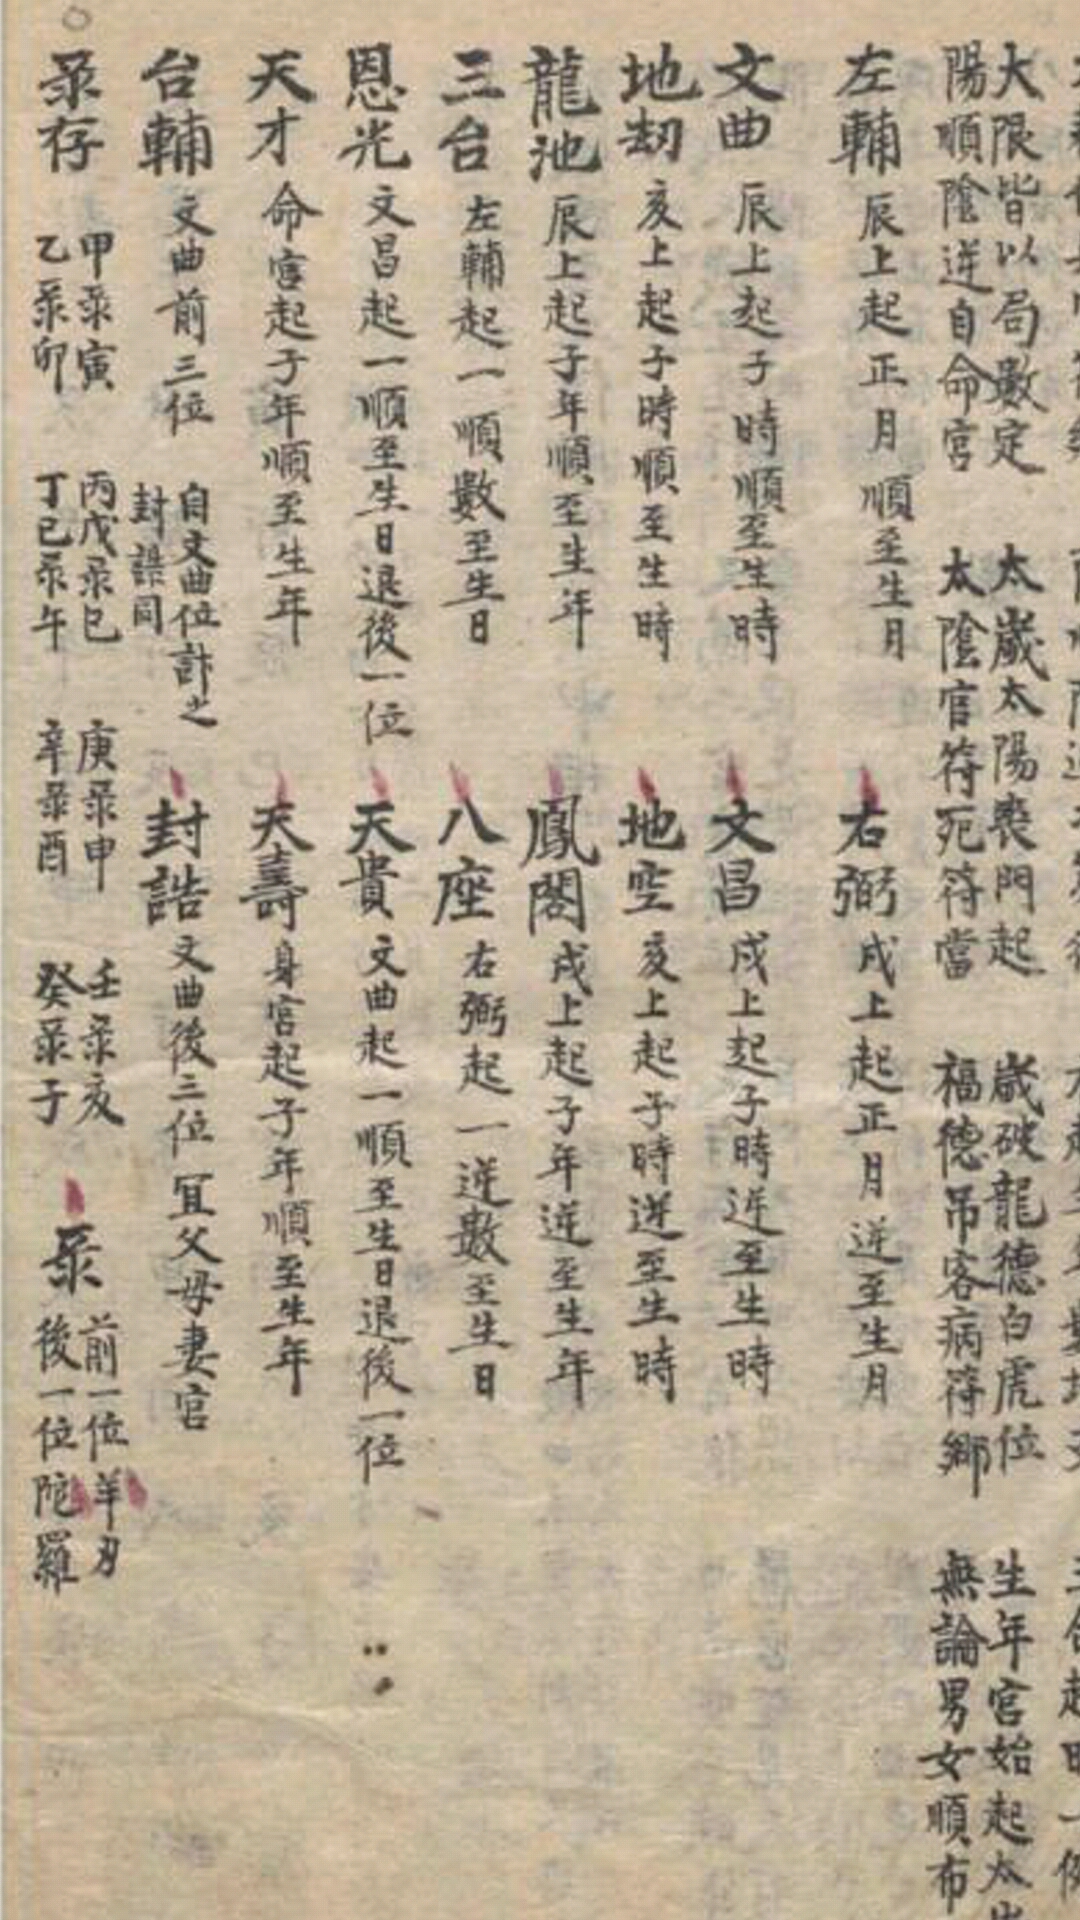 大限皆以局數定　太歲太陽喪門起　歲破龍德白虎位　生年宮始起太
陽順陰逆自命宮　太陰官符死符當　福德吊客病符鄉　無論男女順布
左輔　辰上起正月順至生月　右弼　戌上起正月逆至生月
文曲　辰上起子時順至生時　文昌　戌上起子時逆至生時
地劫　亥上起子時順至生時　地空　亥上起子時逆至生時
龍池　辰上起子年順至生年　鳳閣　戌上起子年逆至生年
三台　左輔起一順數至生日　八座　右弼起一逆數至生日
恩光　文昌起一順至生日退後一位　天貴　文曲起一順至生日退後一位
天才　命宮起子年順至生年　天壽　身宮起子年順至生年
台輔　文曲前三位　自文曲位計之　封誥同　封誥　文曲後三位　宜父母妻宮
彔存　甲彔寅　乙彔卯　丙戊彔巳　丁己彔午　庚彔申　辛彔酉　壬彔亥　癸彔子　彔　前一位羊刃　後一位陀羅